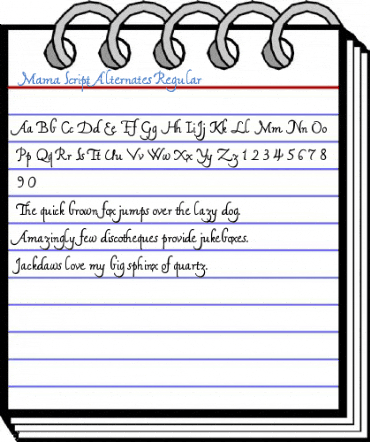 Mama Script Alternates Regular
Aa Bb Cc Dd Ee Ff Gg Hh Ii Jj Kk Ll Mm Nn Oo
Pp Qq Rr Ss Tt Uu Vv Ww Xx Yy Zz 1 2 3 4 5 6 7 8
9 0
The quick brown fox jumps over the lazy dog.
Amazingly few discotheques provide jukeboxes.
Jackdaws love my big sphinx of quartz.